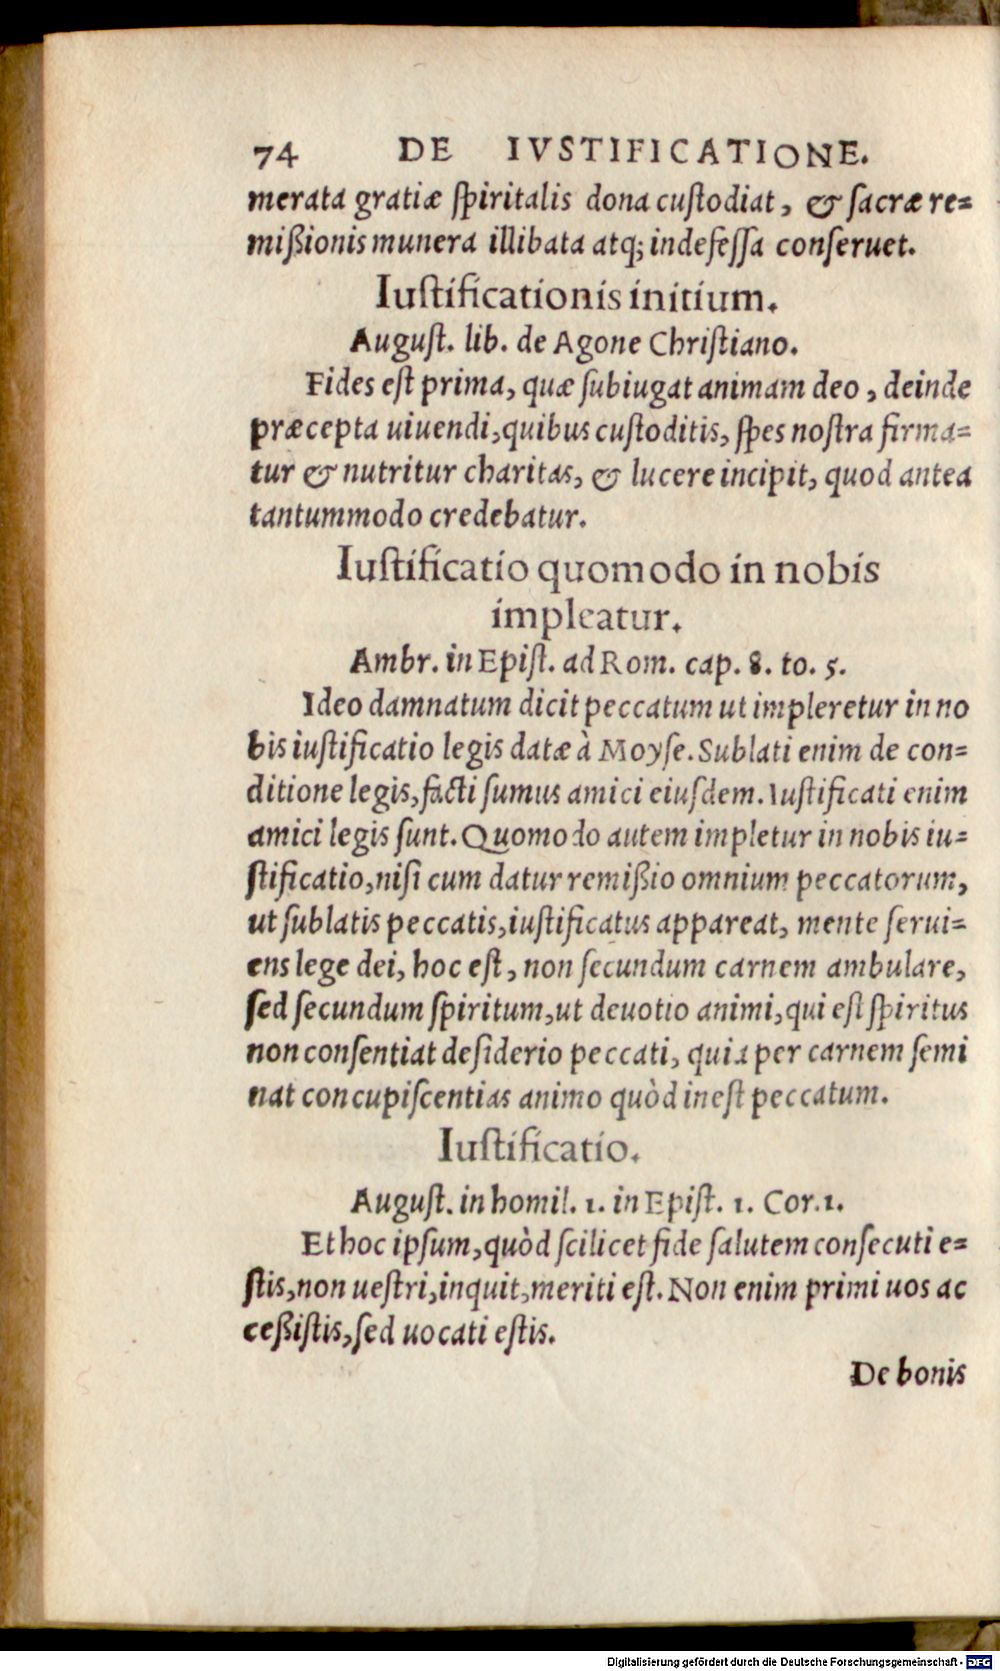 74 DE IVSTIFICATIONE.
merata gratiæ ſpiritalis dona cuſtodiat, & ſacræ re=
mißionis munera illibata atq; indefeſſa conſeruet.
Iuſtificationis initium.
Auguſt. lib. de Agone Chriſtiano.
Fides eſt prima, quæ ſubiugat animam deo, deinde
præcepta uiuendi, quibus cuſtoditis, ſpes noſtra firma=
tur & nutritur charitas, & lucere incipit, quod antea
tantummodo credebatur.
Iuſtificatio quomodo in nobis
impleatur.
Ambr. in Epiſt. ad Rom. cap. 8. to. 5.
Ideo damnatum dicit peccatum ut impleretur in no
bis iuſtificatio legis datæ à Moyſe. Sublati enim de con=
ditione legis, facti ſumus amici eiuſdem. Iuſtificati enim
amici legis ſunt. Quomodo autem impletur in nobis iu=
ſtificatio, niſi cum datur remißio omnium peccatorum,
ut ſublatis peccatis, iuſtificatus appareat, mente ſerui=
ens lege dei, hoc eſt, non ſecundum carnem ambulare,
ſed ſecundum ſpiritum, ut deuotio animi, qui eſt ſpiritus
non conſentiat deſiderio peccati, quia per carnem ſemi
nat concupiſcentias animo quòd ineſt peccatum.
Iuſtificatio.
Auguſt. in homil. 1. in Epiſt. 1. Cor. 1.
Et hoc ipſum, quòd ſcilicet fide ſalutem conſecuti e=
ſtis, non ueſtri, inquit, meriti eſt. Non enim primi uos ac
ceßiſtis, ſed uocati eſtis.
De bonis
Digitalisierung gefördert durch die Deutsche Forschungsgemeinschaft - DFG